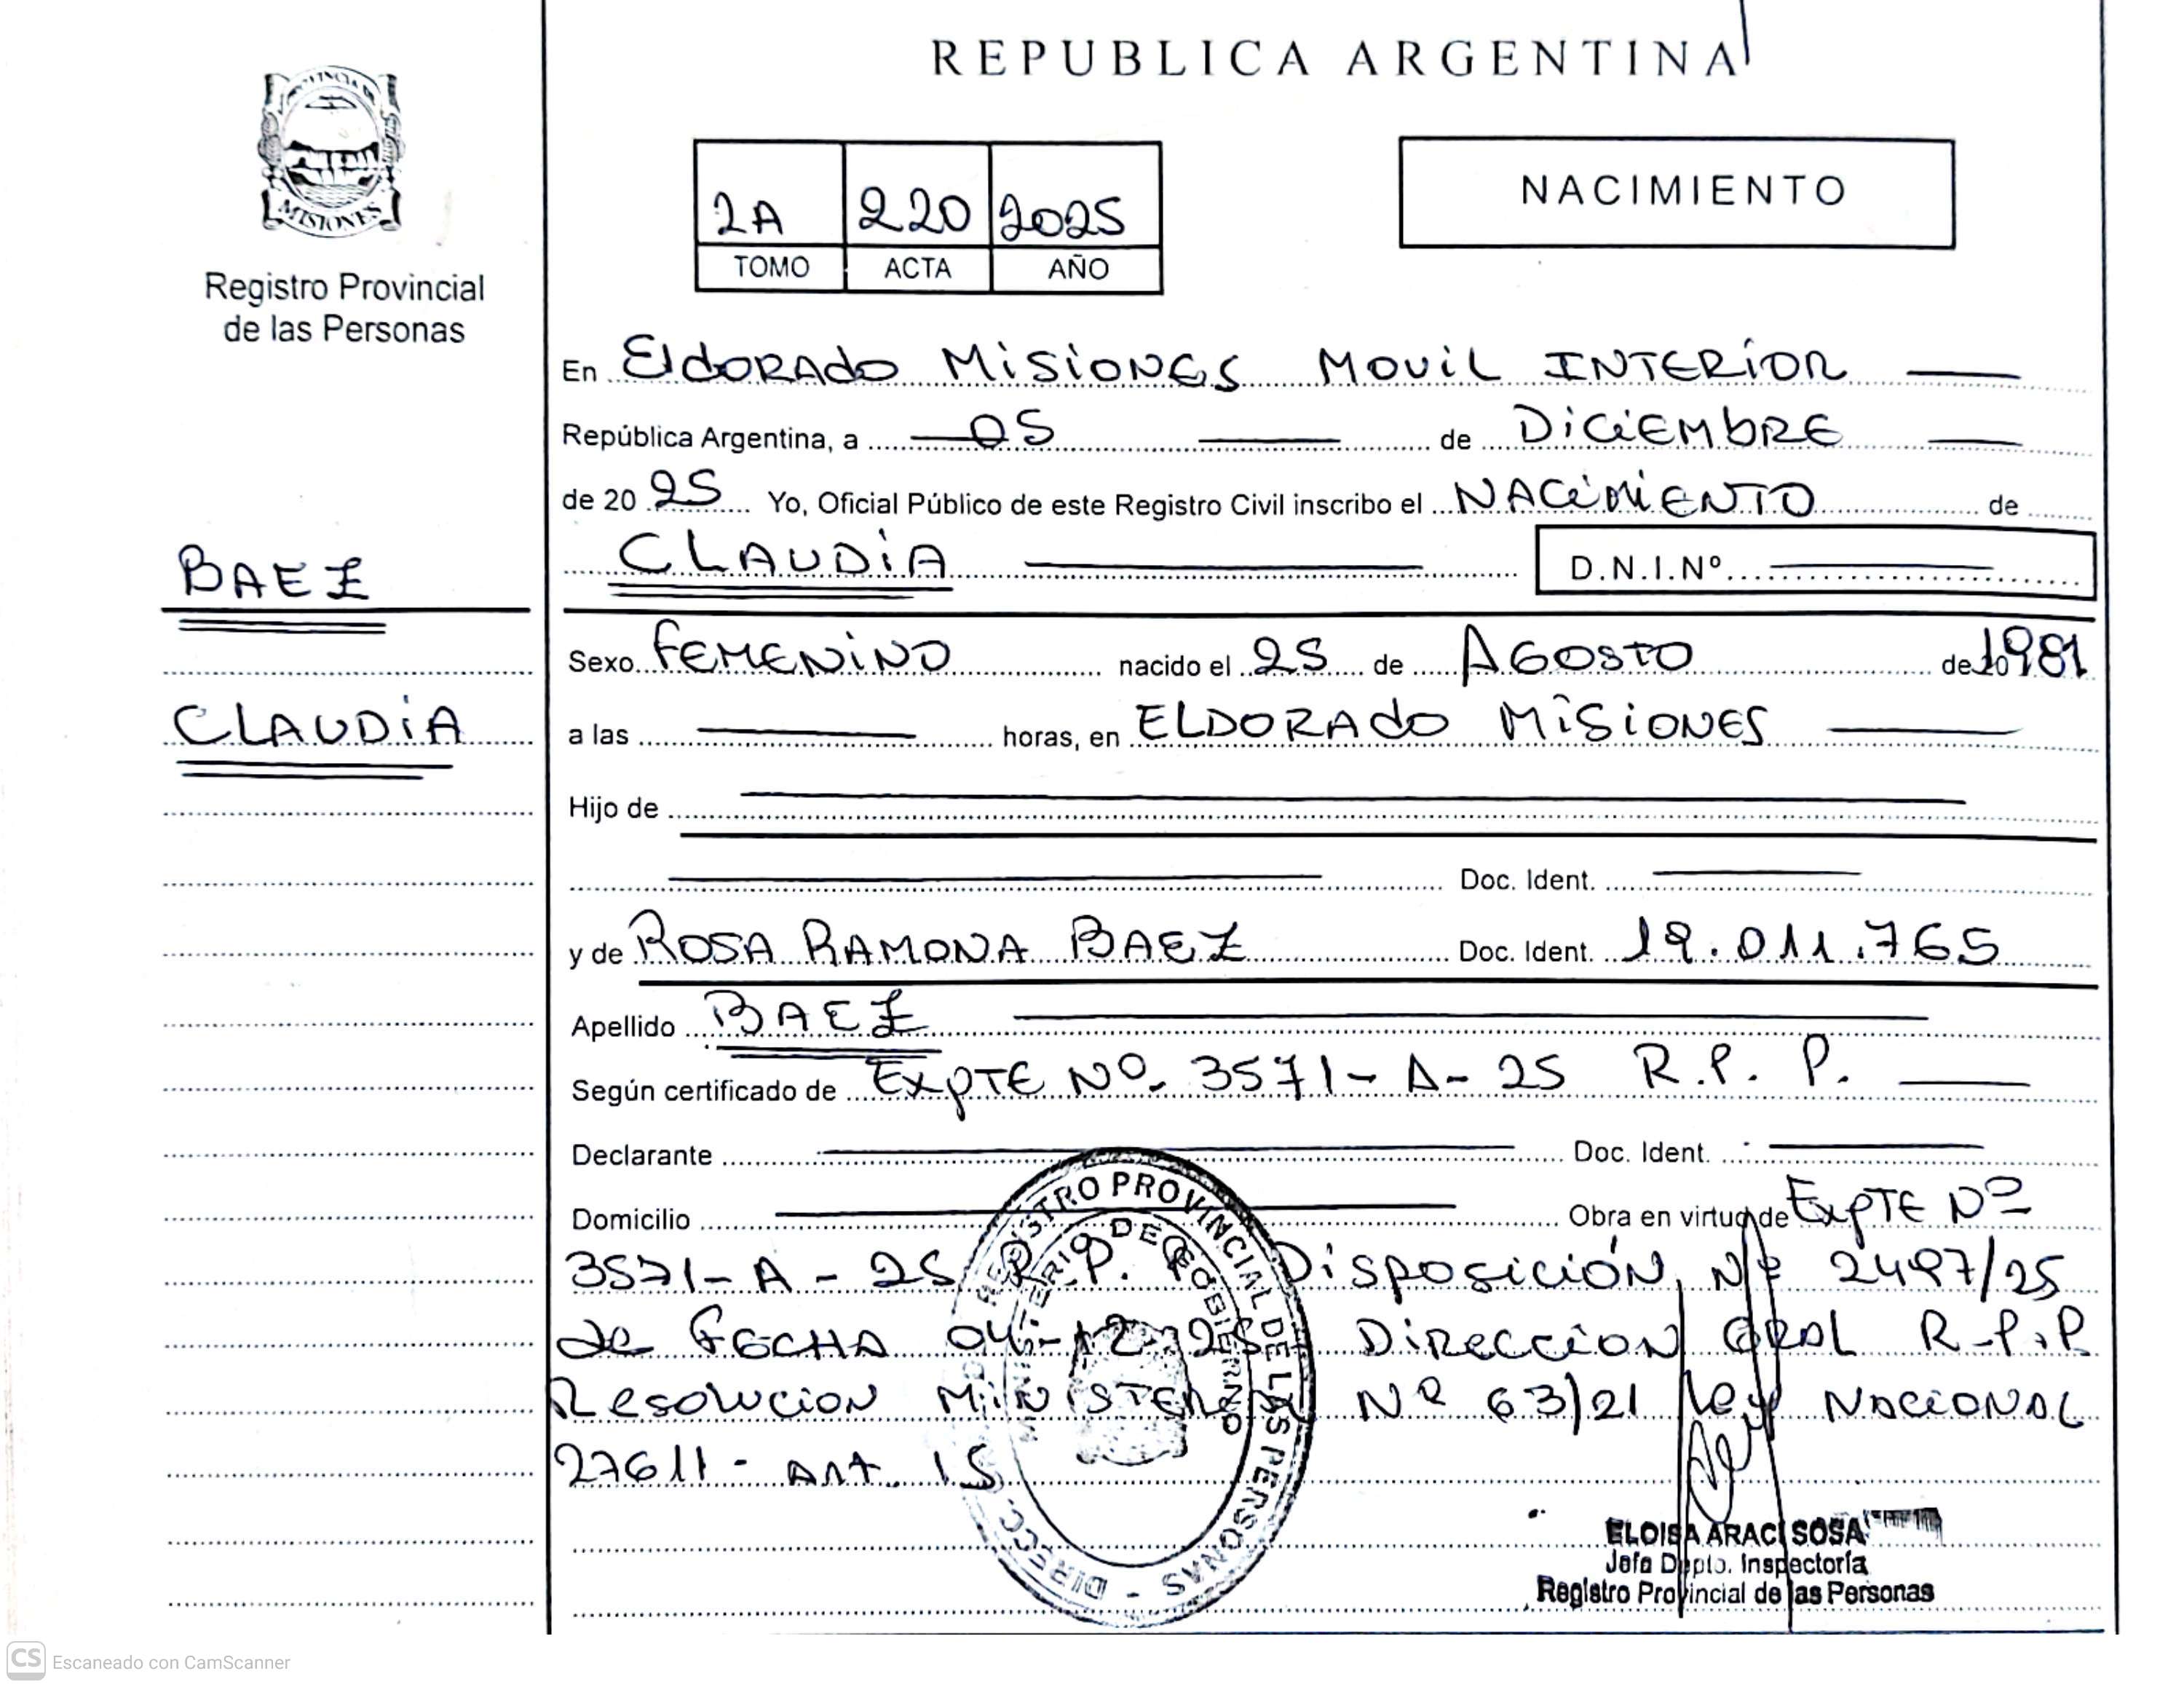 REPUBLICA ARGENTINA
PROVINCIA DE
MISIONES
Registro Provincial
de las Personas
2A 220 2025
TOMO ACTA AÑO
NACIMIENTO
En ElDORADO MISIONES MOVIL INTERIOR
República Argentina, a 05 de DICIEMBRE
de 20 25 Yo, Oficial Público de este Registro Civil inscribo el NACIMIENTO de
CLAUDIA D.N.I.Nº
BAEZ
CLAUDIA
Sexo FEMENINO nacido el 25 de AGOSTO de 1981
a las horas, en ELDORADO MISIONES
Hijo de
Doc. Ident.
y de ROSA RAMONA BAEZ Doc. Ident. 19.011.765
Apellido BAEZ
Según certificado de EXPTE Nº 3571-A-25 R.P.P.
Declarante Doc. Ident.
Domicilio Obra en virtud de EXPTE Nº
3571-A-25 R.P.P. DISPOSICIÓN Nº 2497/25
de FECHA 04-12-25 DIRECCION GRAL R.P.P
RESOLUCION MINISTERIAL Nº 63/21 Ley NACIONAL
27611- Art. 15
DIRECC. REGISTRO PROVINCIAL DE LAS PERSONAS -
MINISTERIO DE GOBIERNO
ELOISA ARACI SOSA
Jefa Dpto. Inspectoría
Registro Provincial de las Personas
CS Escaneado con CamScanner